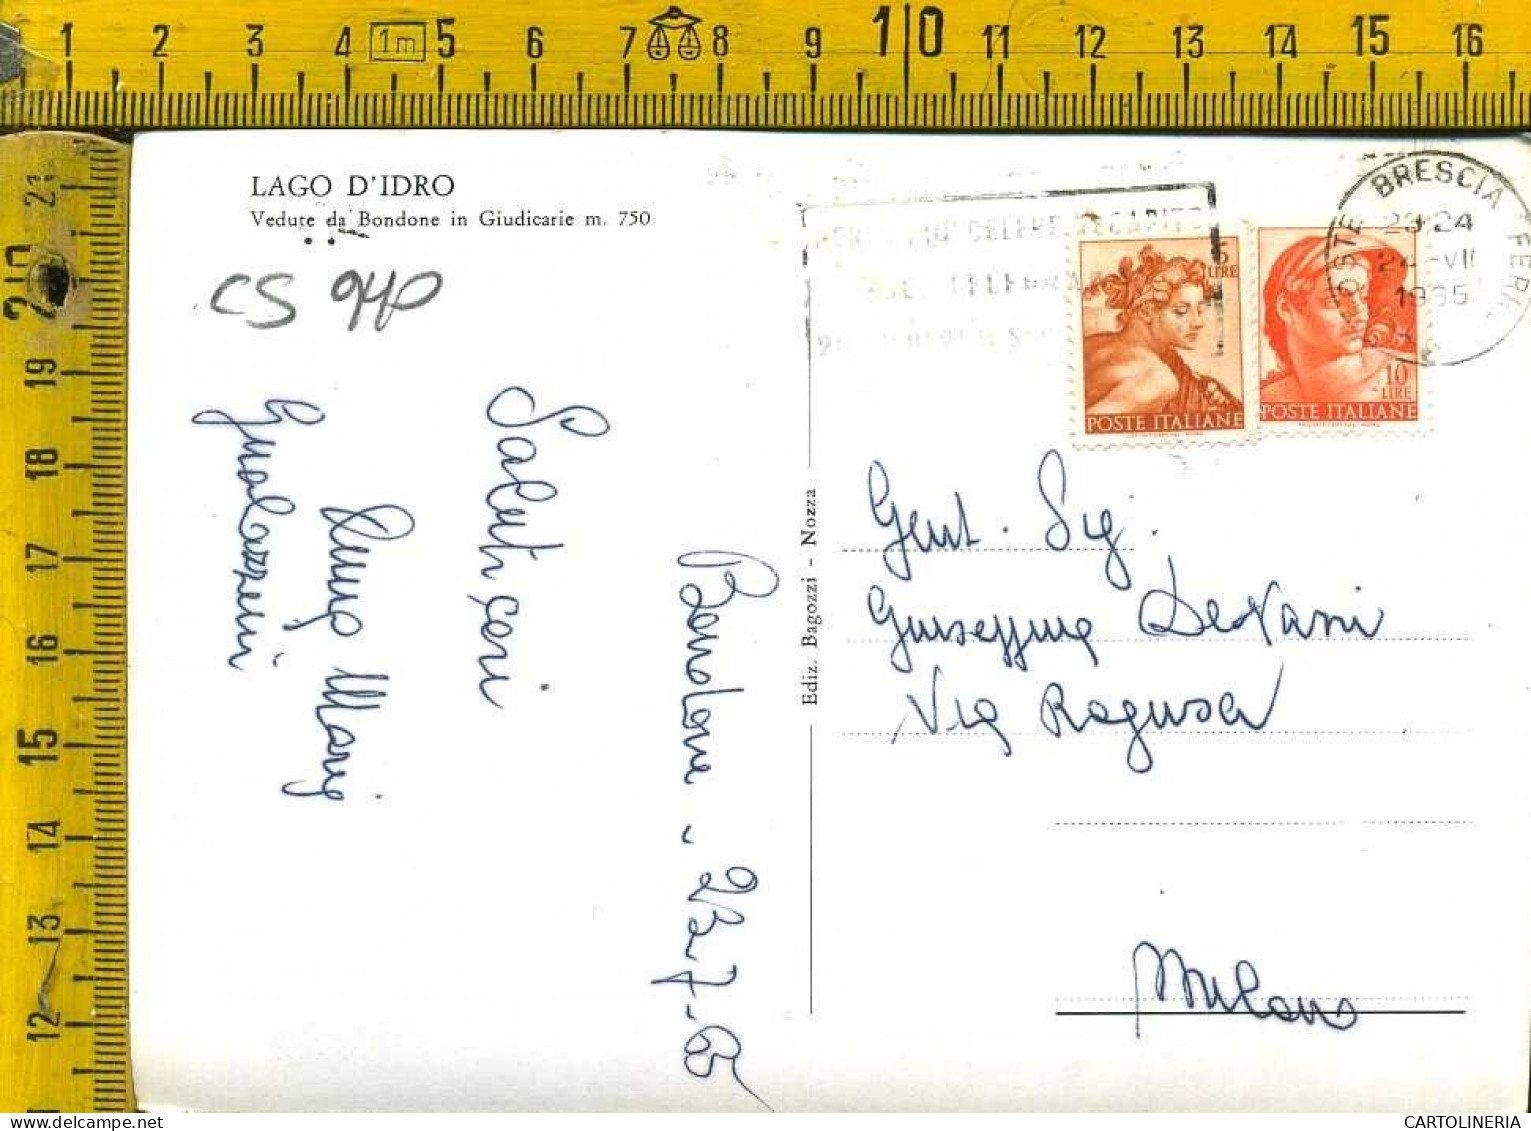 1 2 3 4 1m 5 6 7 8 9 10 11 12 13 14 15 16
21
20
19
18
17
16
15
14
13
12
LAGO D'IDRO
Vedute da Bondone in Giudicarie m. 750
CS 940
BRESCIA
POSTE
FERR
23-24
24-VII
1965
5
LIRE
POSTE ITALIANE
10
LIRE
POSTE ITALIANE
Bondone - 23-7-65
Saluti cari
Maria
Gualazzini
Ediz. Bagozzi - Nozza
Gent. Sig.
Giuseppina
Via Ragusa
Milano
CARTOLINERIA